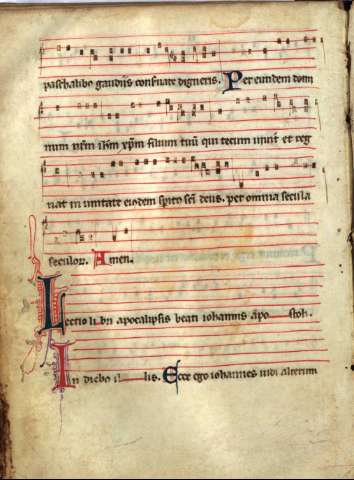 paschalibꝰ gaudijs conseruare digneris. Per eundem domi
num nrm̄ ihm̄ xpm̄ filium tuū qui tecum uiuit et reg
nat in unitate eiusdem spiritꝰ scī deus. per omnia secula
seculoꝝ. Amen.
Lectio libri apocalipsis beati iohannis apo stoli.
In diebꝰ il lis. Ecce ego iohannes uidi alterum